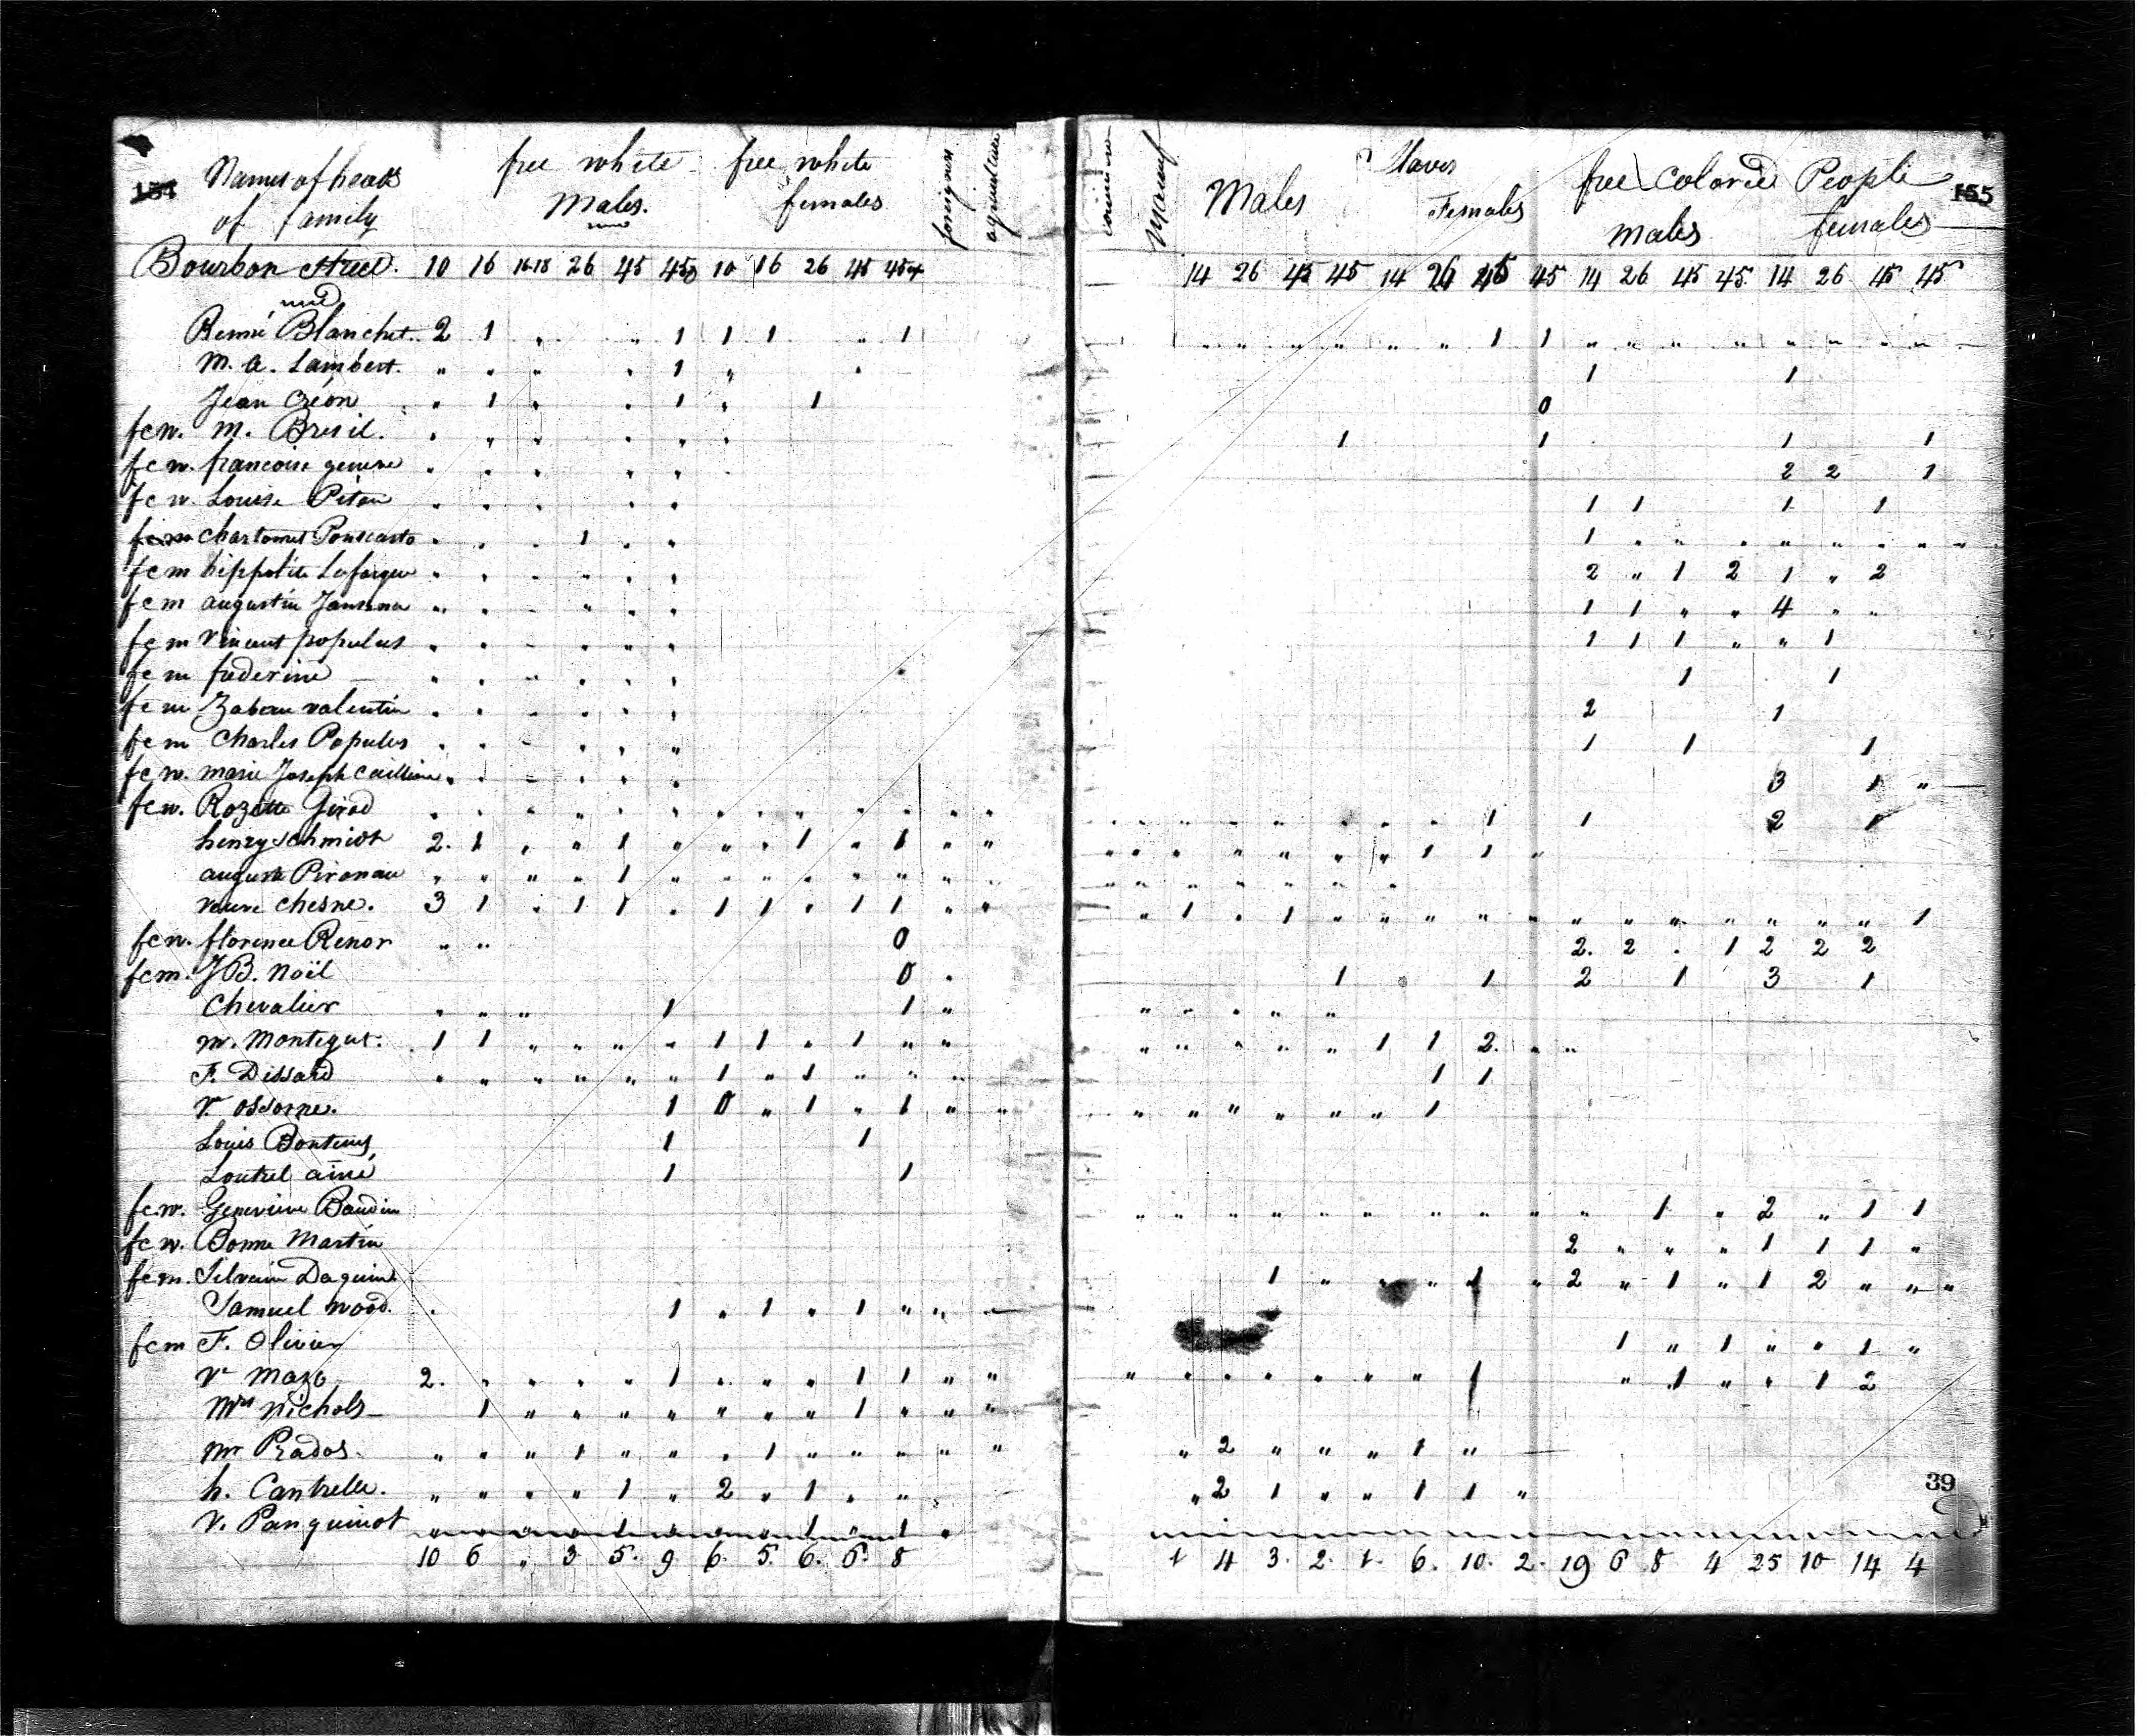 154
Names of heads of family
free white Males.
free white females
foreigners
agriculture
Bourbon street. 10 16 16-18 26 45 45 10 16 26 45 45
René Blanchet 2 1 " " 1 1 1 " 1
M. A. Lambert. " " " " 1 " "
Jean Créon " 1 " " 1 " 1
fcw. M. Bresil. " " " " " " "
fcw. francoise " " " " " "
fcw. Louise Pitau " " " " "
chartomet " " " 1 " "
fcm hippolite Lafargue " " " " " "
fcm augustin " " " " " "
fcm Vincent populus " " " " " "
fcm frederine " " " " " "
fcm Zabeau valentin " " " " " "
fcm Charles Populus " " " " " "
fcw. marie Joseph " " " " "
fcw. Rozette Girod " " " " " " " " " " " " "
henry schmidt 2. 1 " " 1 " " " 1 " 1 " "
auguste Pironau " " " " 1 " " " " " " " "
veuve chesne. 3 1 " 1 1 " 1 1 " 1 1 " "
fcw. florence Renor " " 0
fcm. J B. Noël 0 "
Chevalier " " " 1 1 "
M. Montegut. 1 1 " " " " 1 1 " 1 " "
F. Dissard " " " " " " 1 " 1 " " "
Ve ossorne. 1 0 " 1 " 1 " "
Louis Bontems 1 1
Loutrel ainé 1 1
fcw. Genevieve Baudin
fcw. Bonne Martin
fcm. Silvain Daquin
Samuel wood. " 1 " 1 " 1 " " "
fcm F. Olivier
Ve Mazo 2. " " " " 1 " " " 1 1 " "
Mrs Nichols 1 " " " " " " " 1 " " "
Mr Prados. " " " 1 " " " 1 " " " " "
h. Cantrelle. " " " " 1 " 2 " 1 " "
V. Panquinot " " " " 1 " " " 1 " 1 "
10 6 " 3 5. 9 6. 5. 6. 6. 8
155
commerce
Manuf
Slaves
Males
Females
free Colored People
males
females
14 26 45 45 14 26 45 45 14 26 45 45. 14 26 45 45
" " " " " " 1 1 " " " " " " " "
1 1
0
1 1 1 1
2 2 1
1 1 1 1
1 " " " " " " "
2 " 1 2 1 " 2
1 1 " " 4 " "
1 1 1 " " 1
1 1
2 1
1 1 1
3 1 "
" " " " " " " " 1 1 2 1
" " " " " " " 1 1 "
" " " " " " "
" 1 " 1 " " " " " " " " " " " " 1
2. 2 " 1 2 2 2
1 1 2 1 3 1
" " " " "
" " " " " 1 1 2. " "
1 1
" " " " " " 1
" " " " " " " " " " 1 " 2 " 1 1
2 " " " 1 1 1 "
1 " " " 1 " 2 " 1 " 1 2 " " "
1 " 1 " " 1 "
" " " " " " " 1 " 1 " " 1 2
" 2 " " " 1 "
" 2 1 " " 1 1 "
39
1 4 3. 2. 1. 6. 10. 2. 19 6 8 4 25 10 14 4